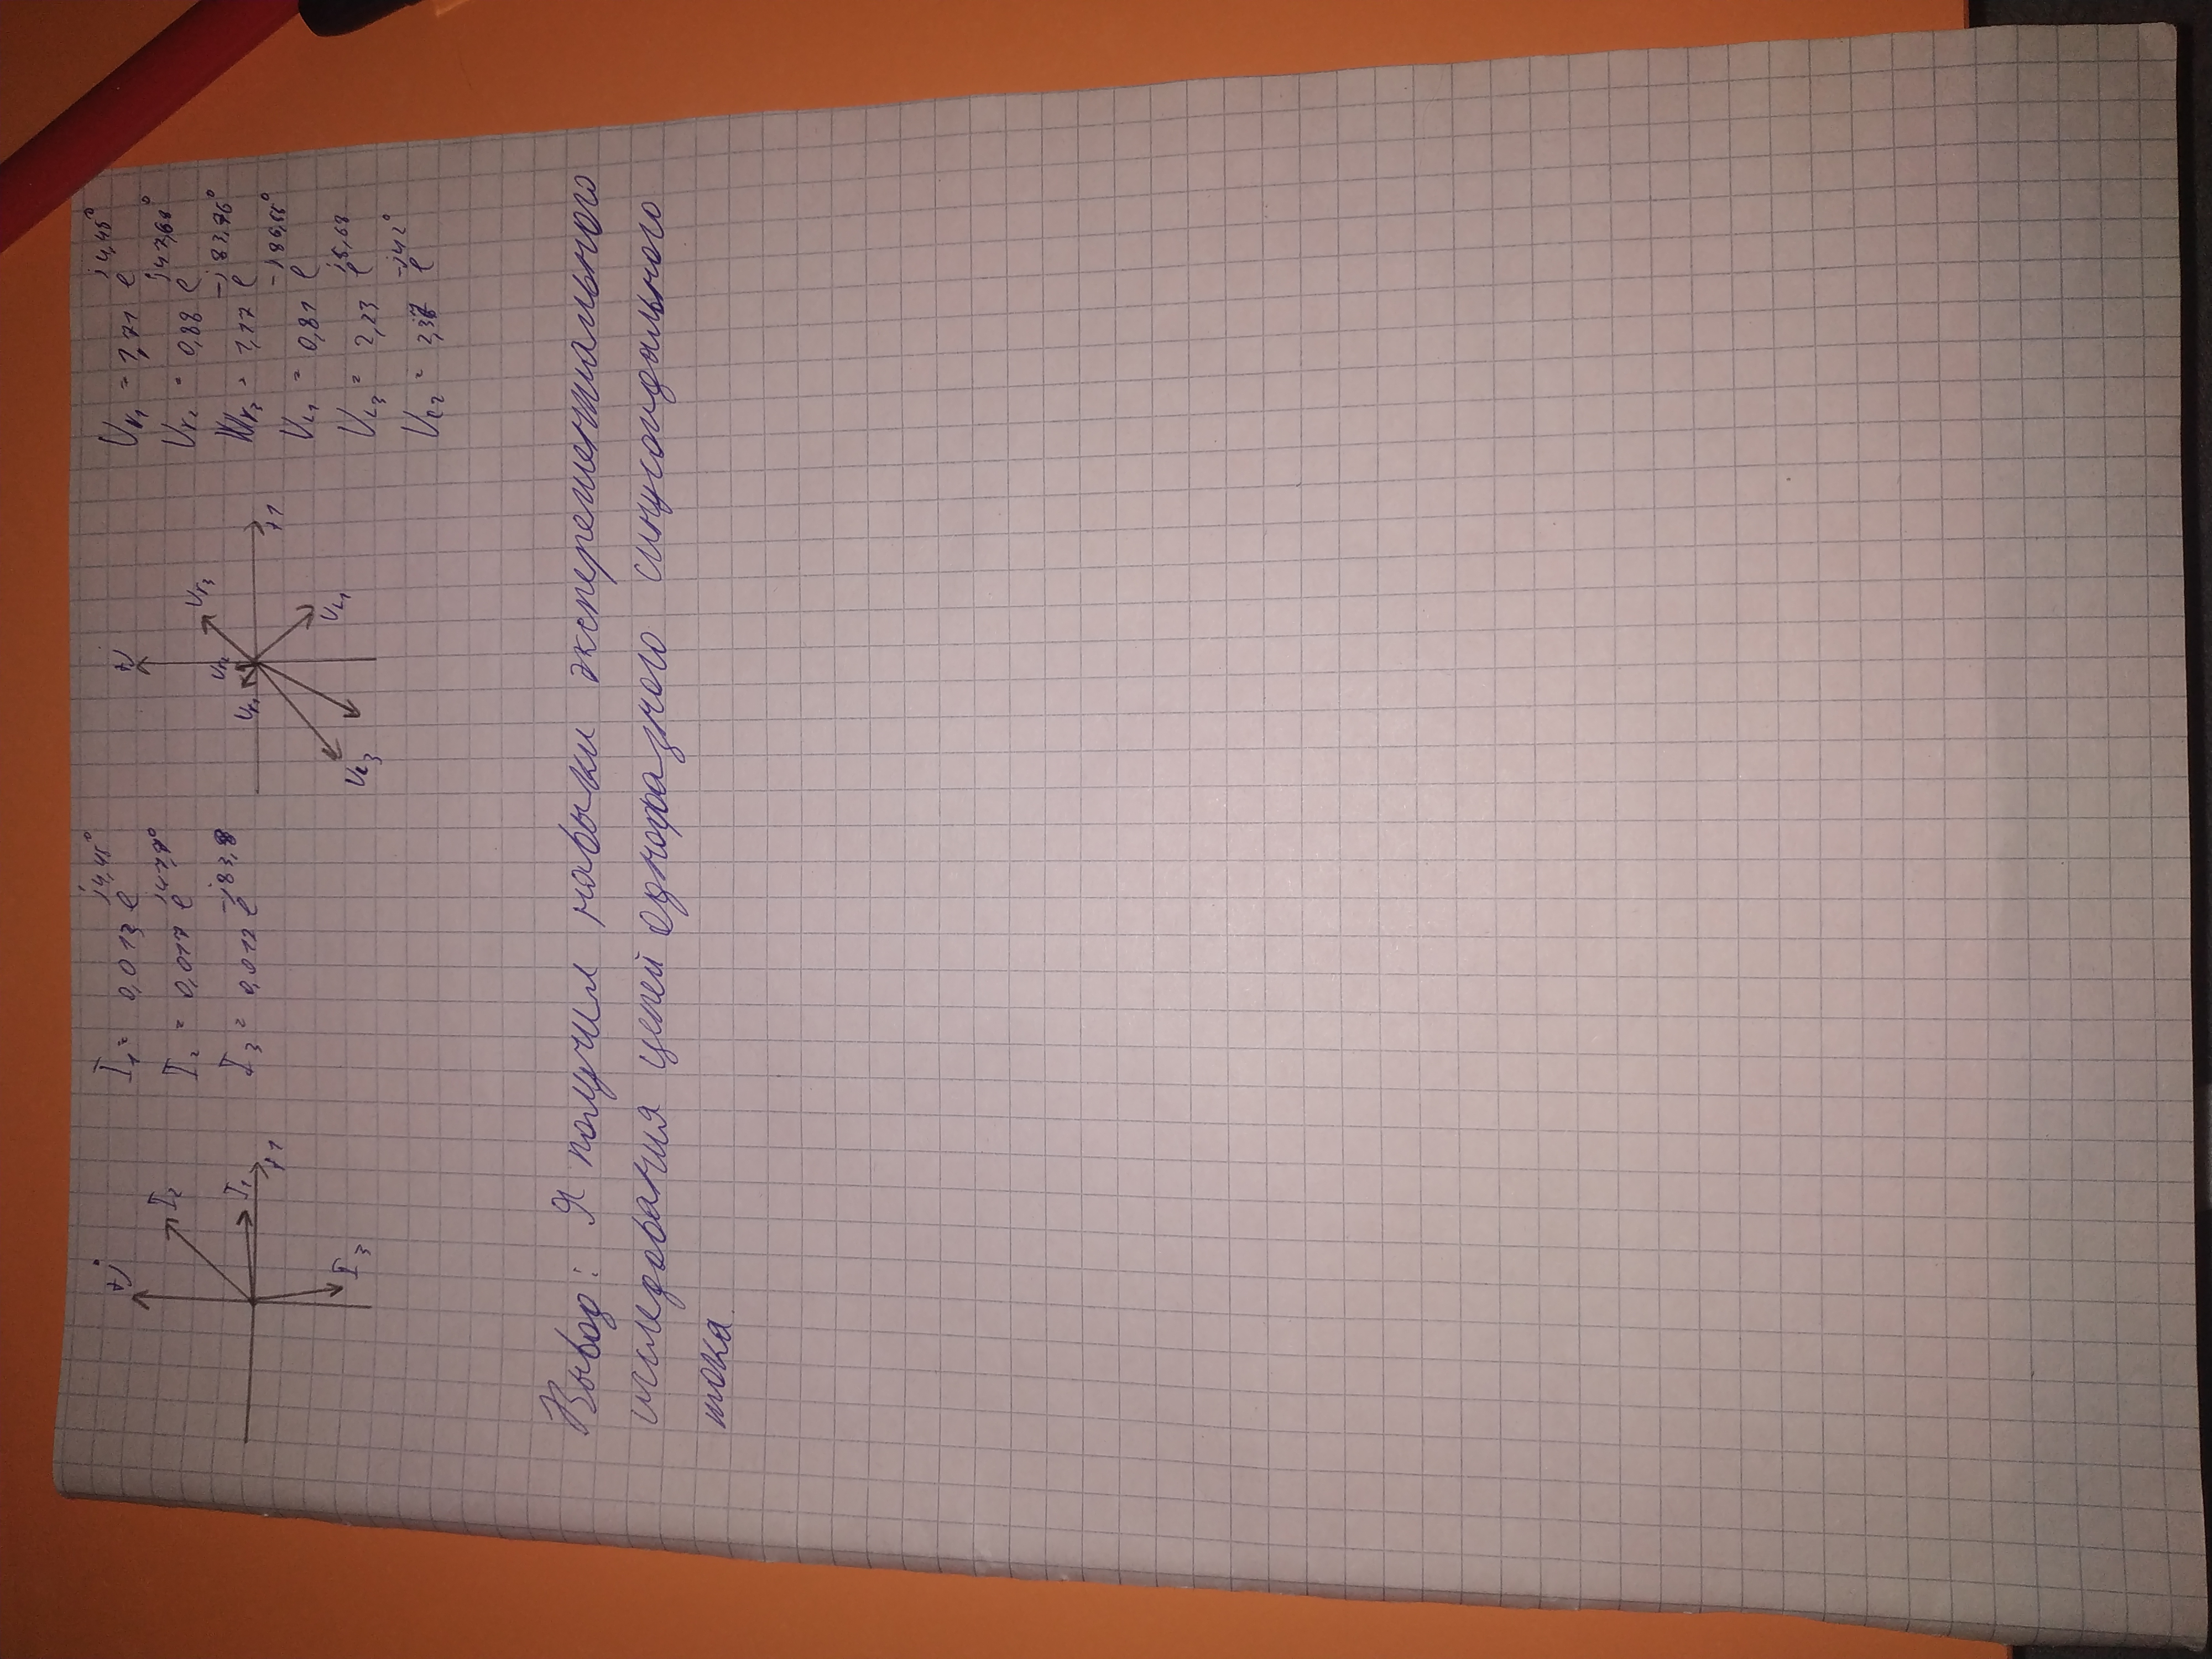 +j
I₂
I₁
+1
I₃
I₁ = 0,013 e^j4,45°
I₂ = 0,017 e^j47,7°
I₃ = 0,012 e^-j83,8
+j
Ur₃
Ur₂
Ur₁
+1
UL₁
Uc₃
Ur₁ = 1,71 e^j4,45°
Ur₂ = 0,88 e^j47,68°
Ur₃ = 1,17 e^-j83,76°
UL₁ = 0,81 e^-j86,55°
UL₃ = 2,23 e^j5,68
Uc₂ = e^-j42°
Вывод: Я получил навыки эксперементального
исследования цепей однофазного синусоидального
тока.